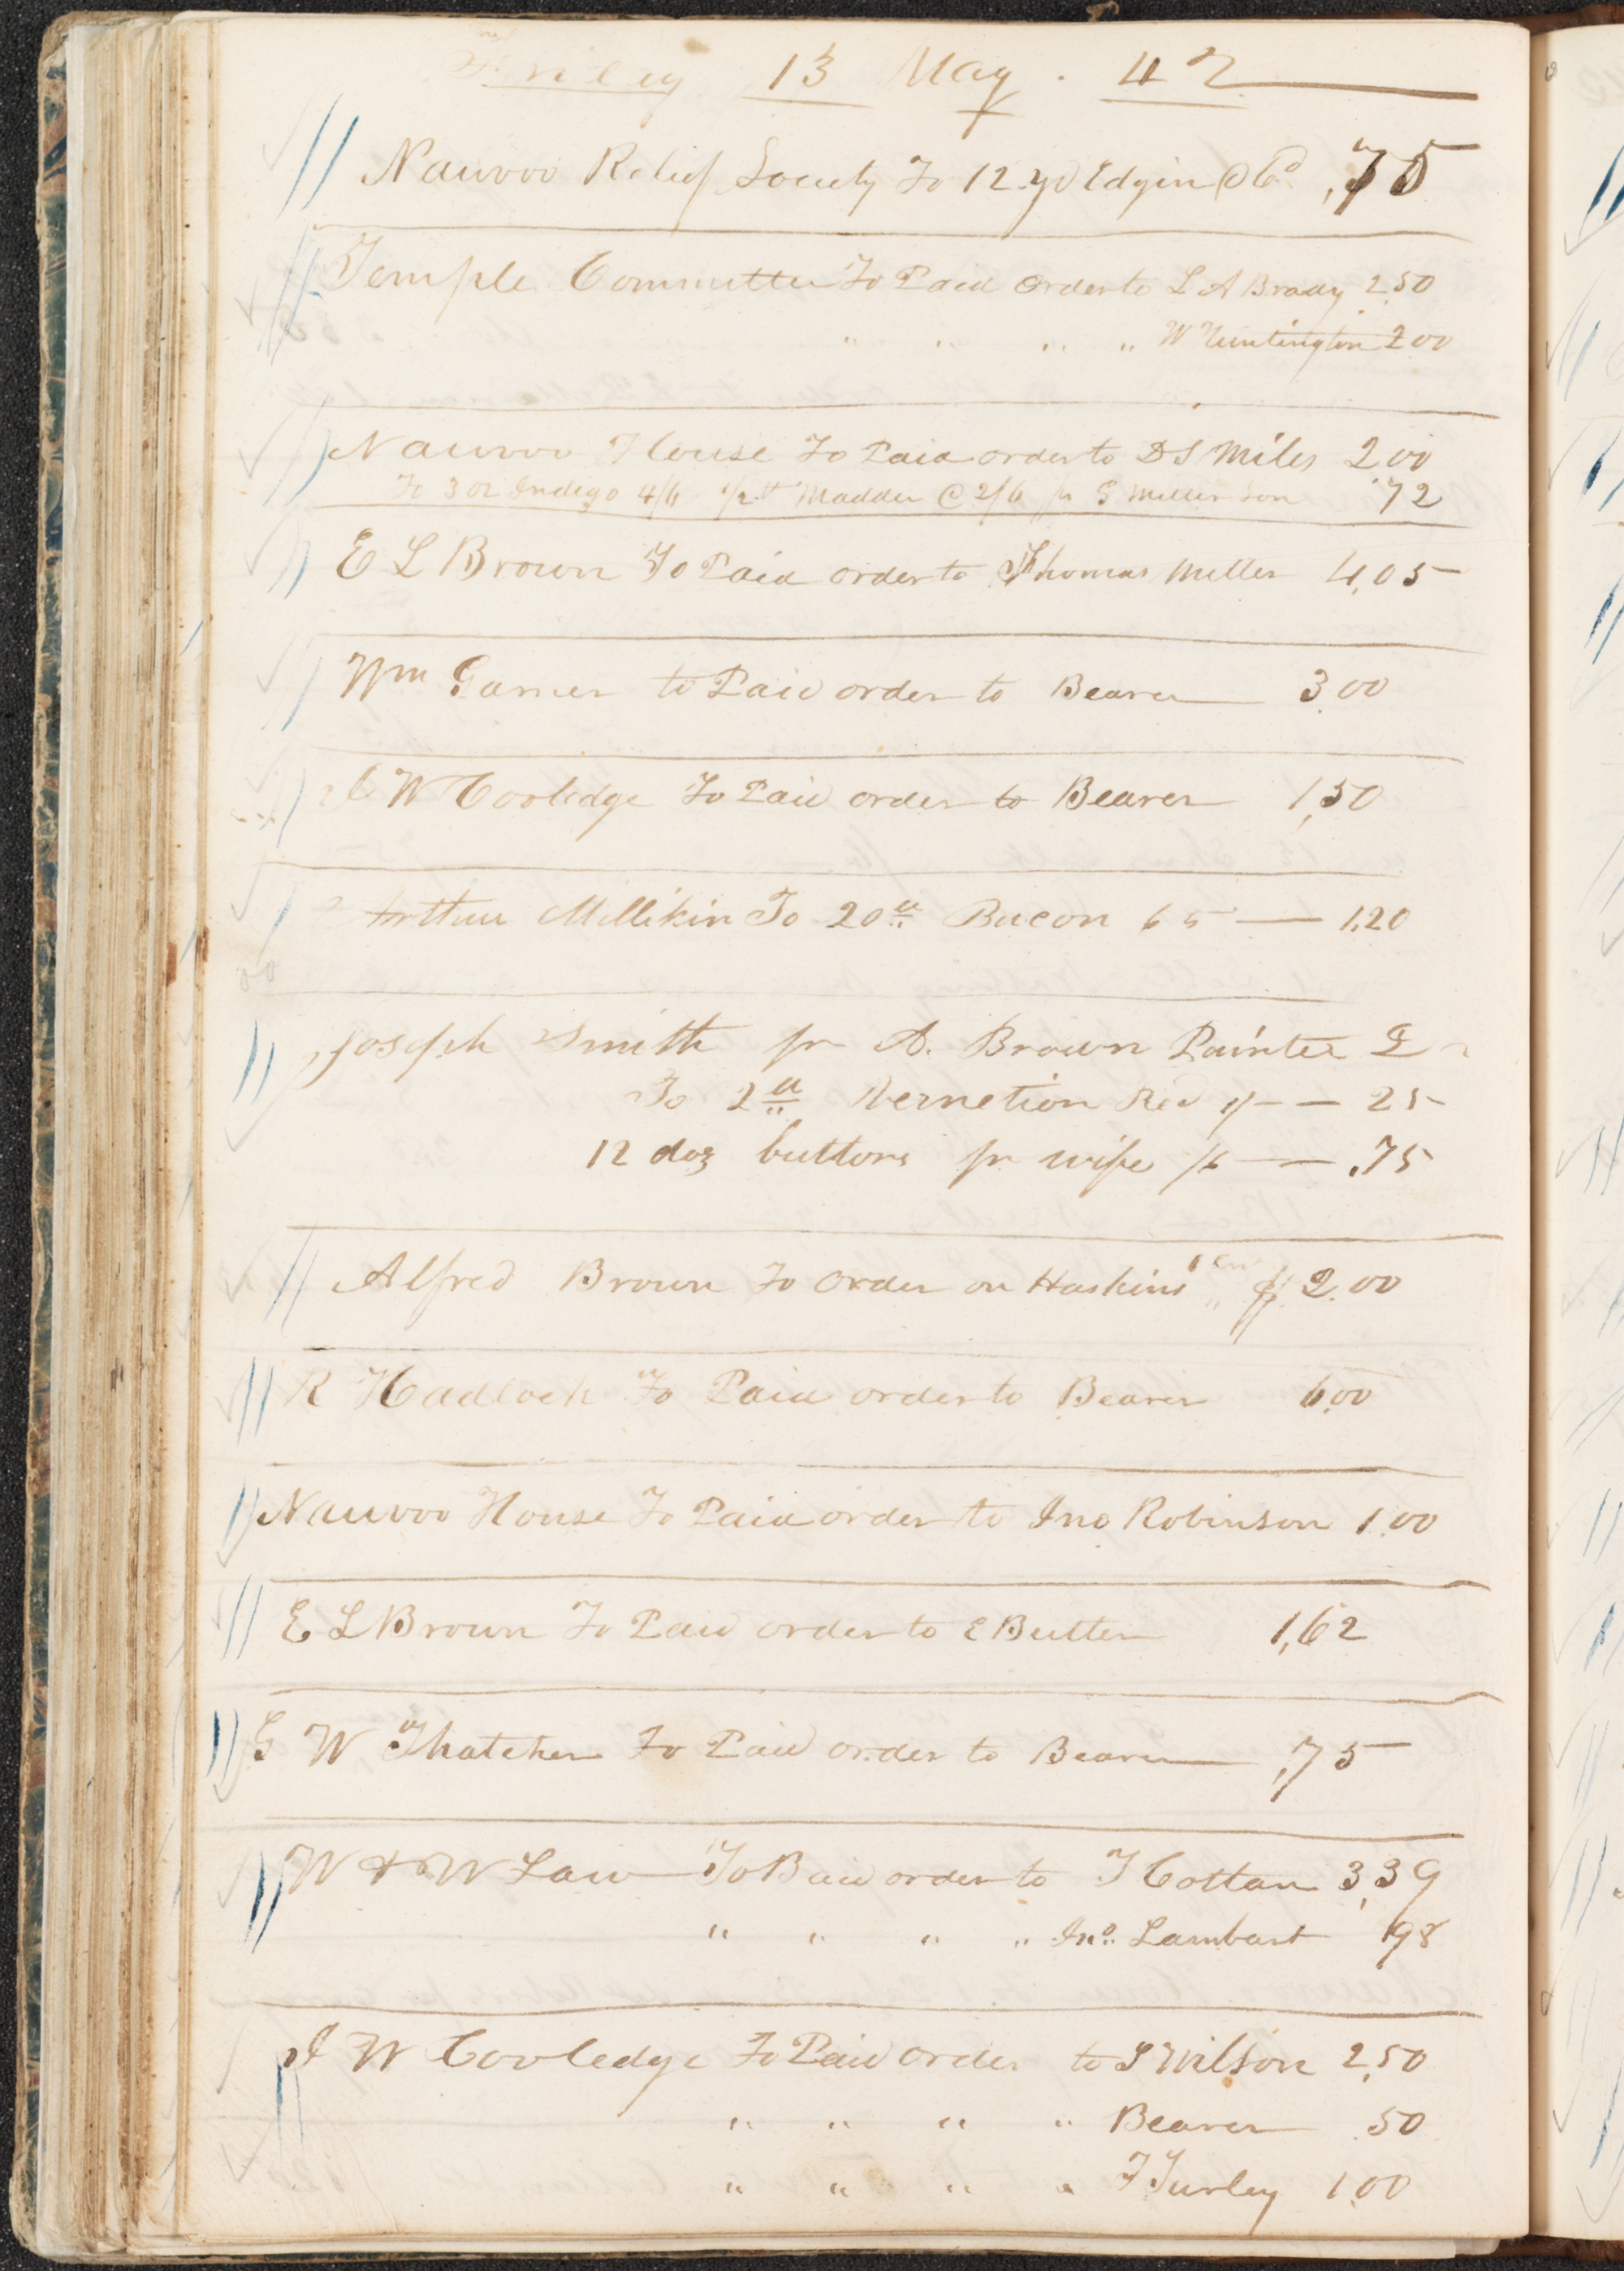 Friday 13 May . 42
Nauvoo Relief Society To 12 yd Edgin @ 6d ,75
Temple Committee To Paid Order to L A Brady 2.50
" " " " W Huntington 2 00
Nauvoo House To Paid order to D S Miles 2 00
To 3 oz Indigo 4/6 1/2 lt Madder @ 2/6 pr G Miller Son .72
E L Brown To Paid order to Thomas Miller 4,05
Wm Garner to Paid order to Bearer 3.00
J W Cooledge To Paid order to Bearer 1,50
Arthur Millikin To 20 lt Bacon 6 1,20
Joseph Smith pr A. Brown Painter
To 2 lt Vernetion Red 1/ — — 25
12 doz buttons pr wife /6 — — .75
Alfred Brown To Order on Haskins $ 2.00
R Hadlock To Paid order to Bearer 6.00
Nauvoo House To Paid order to Jno Robinson 1.00
E L Brown To Paid order to E Butler 1,62
G W Thatcher To Paid order to Bearer ,75
W & W Law To Paid order to J Cottam 3,39
" " " " Jno. Lambart 98
J W Cooledge To Paid order to S Wilson 2,50
" " " " Bearer .50
" " " " T Turley 1.00